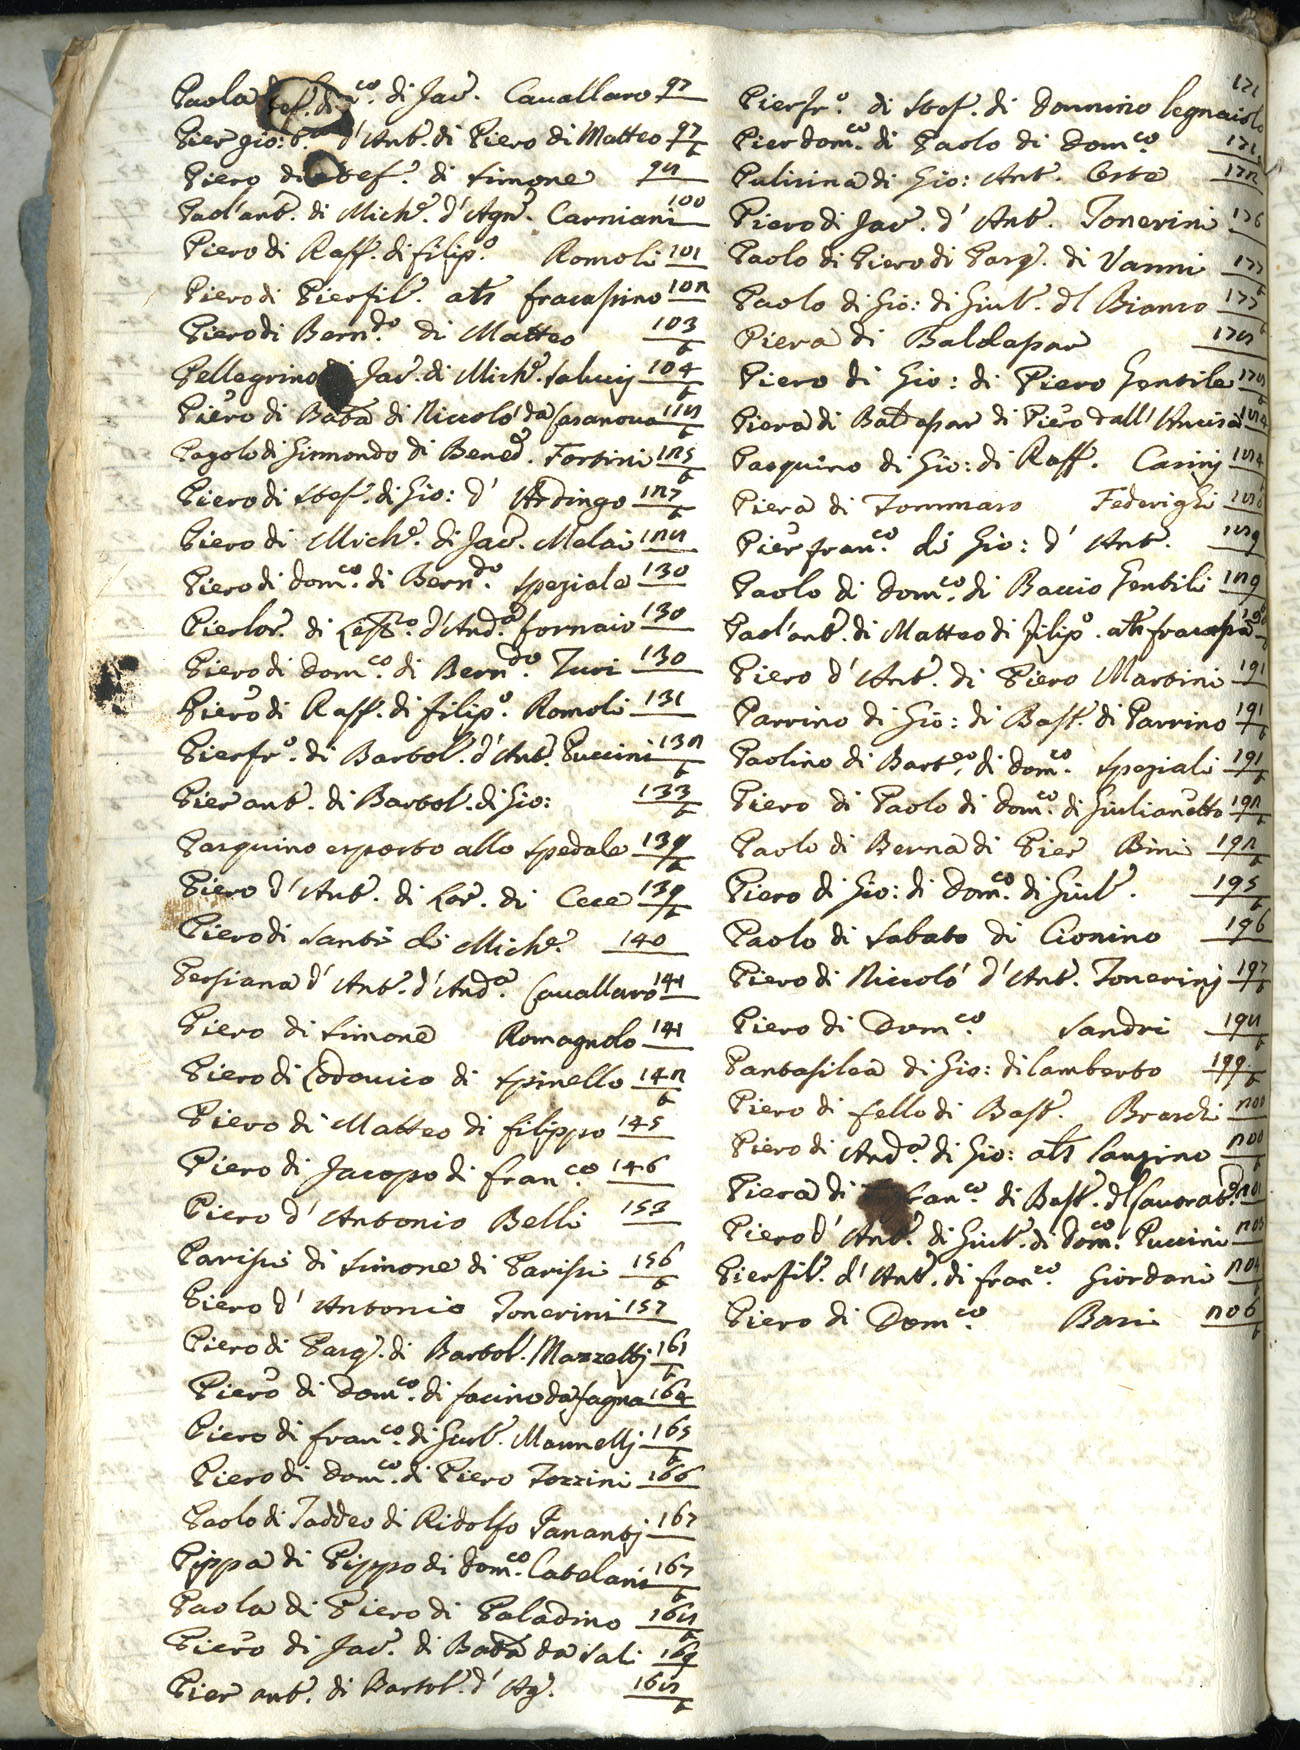 Paola di Jac. Cavallaro 97
Pier gio: d'Ant. di Piero di Matteo 97 t
Piero di Stef. di Simone 98
Paol'ant. di Mich.e d'Agn. Carniani 100
Piero di Raff. di filip.o Romoli 101
Piero di Pierfil. als fracassino 102
Piero di Bern.do di Matteo 103 t
Pellegrino Jac. di Mich.e Salucij 104 t
Piero di Batta di Niccolò da Casanova 118 t
Pagolo di Gismondo di Bened. Fortini 125 t
Piero di Stef. di Gio: d'Ardingo 127 t
Piero di Mich.e di Jac. Melai 128
Piero di Dom.co di Bern.do Speziale 130
Pierlor. di d'And.a fornaio 130
Piero di Dom.co di Bern.do Turi 130
Piero di Raff. di filip.o Romoli 131
Pierfr.o di Bartol. d'Ant. Puccini 132 t
Pier ant. di Bartol. di Gio: 133 t
Pasquino esposto allo Spedale 139 t
Piero d'Ant. di Lor. di Cece 139 t
Piero di Santi di Mich.e 140
Persiana d'Ant. d'And.a Cavallaro 141
Piero di Simone Romagnolo 141
Piero di Lodovico di Spinello 142 t
Piero di Matteo di filippo 145
Piero di Jacopo di fran.co 146
Piero d'Antonio Belli 153
Parisi di Simone di Parisi 156 t
Piero d'Antonio Tonerini 157
Piero di Pasq. di Bartol. Mazzettj 161 t
Piero di Dom.co di facino da fagna 164
Piero di fran.co di Giul. Mannellj 165 t
Piero di Dom.co di Piero Tozzini 166
Paolo di Taddeo di Ridolfo Fanantj 167
Pippa di Pippo di Dom.co Catelani 167 t
Paola di Piero di Paladino 168 t
Piero di Jac. di Batta da Sali 169
Pier ant. di Bartol. d'Ag. 168 t
Pierfr.o di Stef. di Donnino legnaiolo 171
Pierdom.co di Paolo di Dom.co 171
Pulisina di Gio: Ant. Ceste 172
Piero di Jac. d'Ant. Tonerini 176
Paolo di Piero di Pasq. di Vanni 177 t
Paolo di Gio: di Giul. dl Bianco 177 t
Piera di Baldassar 178
Piero di Gio: di Piero Gentile 178 t
Piera di Baldassar di Piero dall'Ancisa 184
Pasquino di Gio: di Raff. Casinj 184
Piera di Tommaso Federighi
Pier fran.co di Gio: d'Ant. 189
Paolo di Dom.co di Baccio Gentili 189
Paol'ant. di Matteo di filip.o als
Piero d'Ant. di Piero Martini 191
Parrino di Gio: di Bast. di Parrino 191 t
Paolino di Bart.eo di Dom.co Speziali 191 t
Piero di Paolo di Dom.co di Giulianetto 192 t
Paolo di Berna di Pier Bini 192 t
Piero di Gio: di Dom.co di Giul. 195 t
Paolo di Sabato di Cionino 196
Piero di Niccolò d'Ant. Tonerinj 197 t
Piero di Dom.co Sandri 198 t
Pantasilea di Gio: di lamberto 199 t
Piero di fello di Bast. Braschi 200
Piero di And.a di Gio: als 200 t
Piera di fran.co di Bast. dl
Piero d'Ant. di Giul. di Dom.co Puccini 203
Pierfil. d'Ant. di fran.co Giordani 204
Piero di Dom.co Bari 206 t